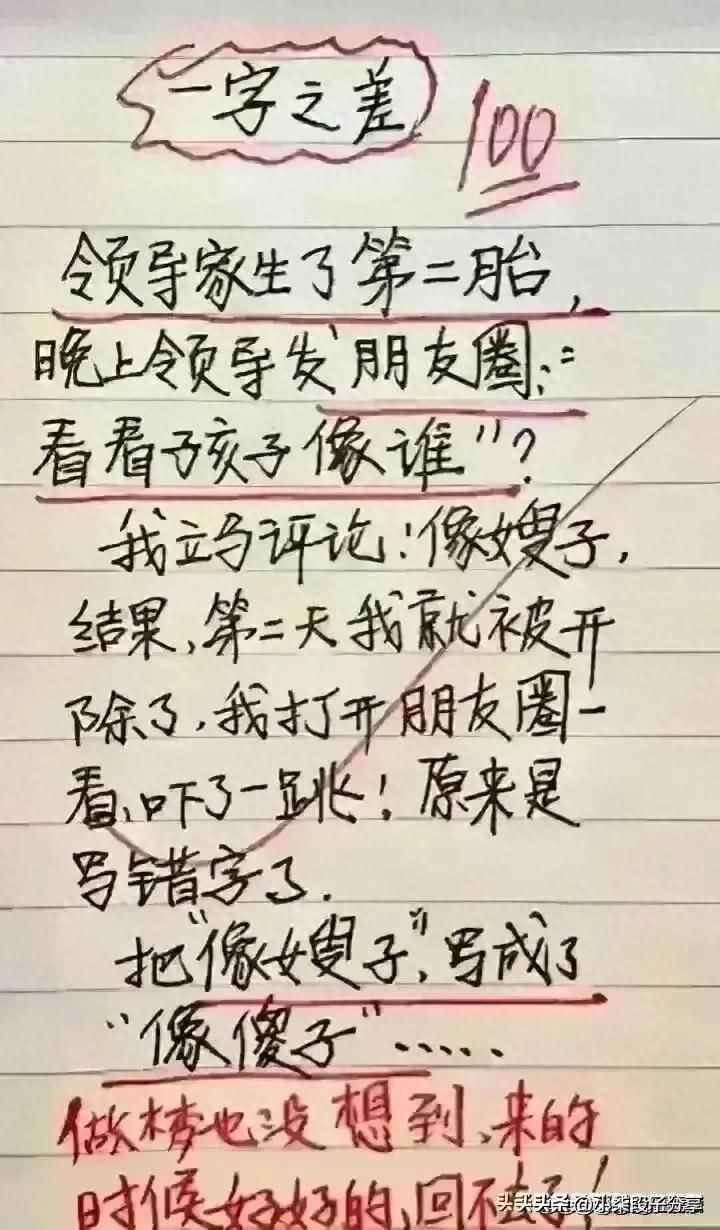 一字之差
100
领导家生了第二胎,
晚上领导发"朋友圈;:
看看孩子像谁"?
我立马评论:像嫂子,
结果,第二天我就被开
除了,我打开朋友圈一
看,吓了一跳!原来是
写错字了.
把"像嫂子",写成了
"像傻子".....
做梦也没想到,来的
时候好好的,回不去了!
头条@小柒段子分享